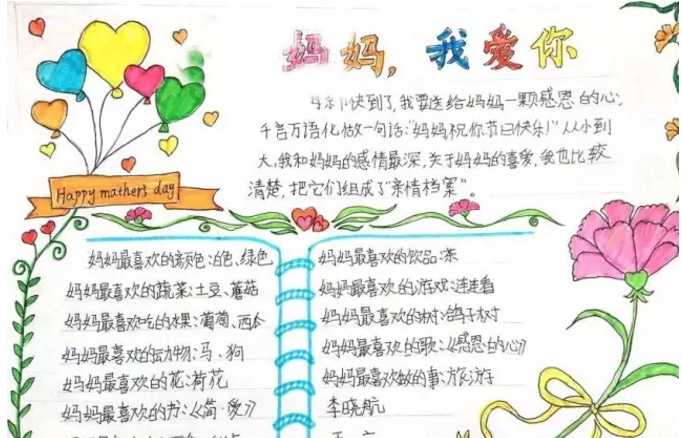 妈妈，我爱你
快到了,我要送给妈妈一颗感恩的心,
千言万语化做一句话:"妈妈祝你节日快乐!"从小到
大,我和妈妈的感情最深,关于妈妈的喜爱,我也比较
清楚,把它们组成了"亲情档案"。
Happy mathers day
妈妈最喜欢的颜色:白色、绿色
妈妈最喜欢的蔬菜:土豆、蘑菇
妈妈最喜欢吃的水果:葡萄、西瓜
妈妈最喜欢的动物:马、狗
妈妈最喜欢的花:荷花
妈妈最喜欢的书:《简·爱》
妈妈最喜欢的饮品:茶
妈妈最喜欢的游戏:连连看
妈妈最喜欢的树:鸽子树
妈妈最喜欢的歌:《感恩的心》
妈妈最喜欢做的事:旅游
李晓航